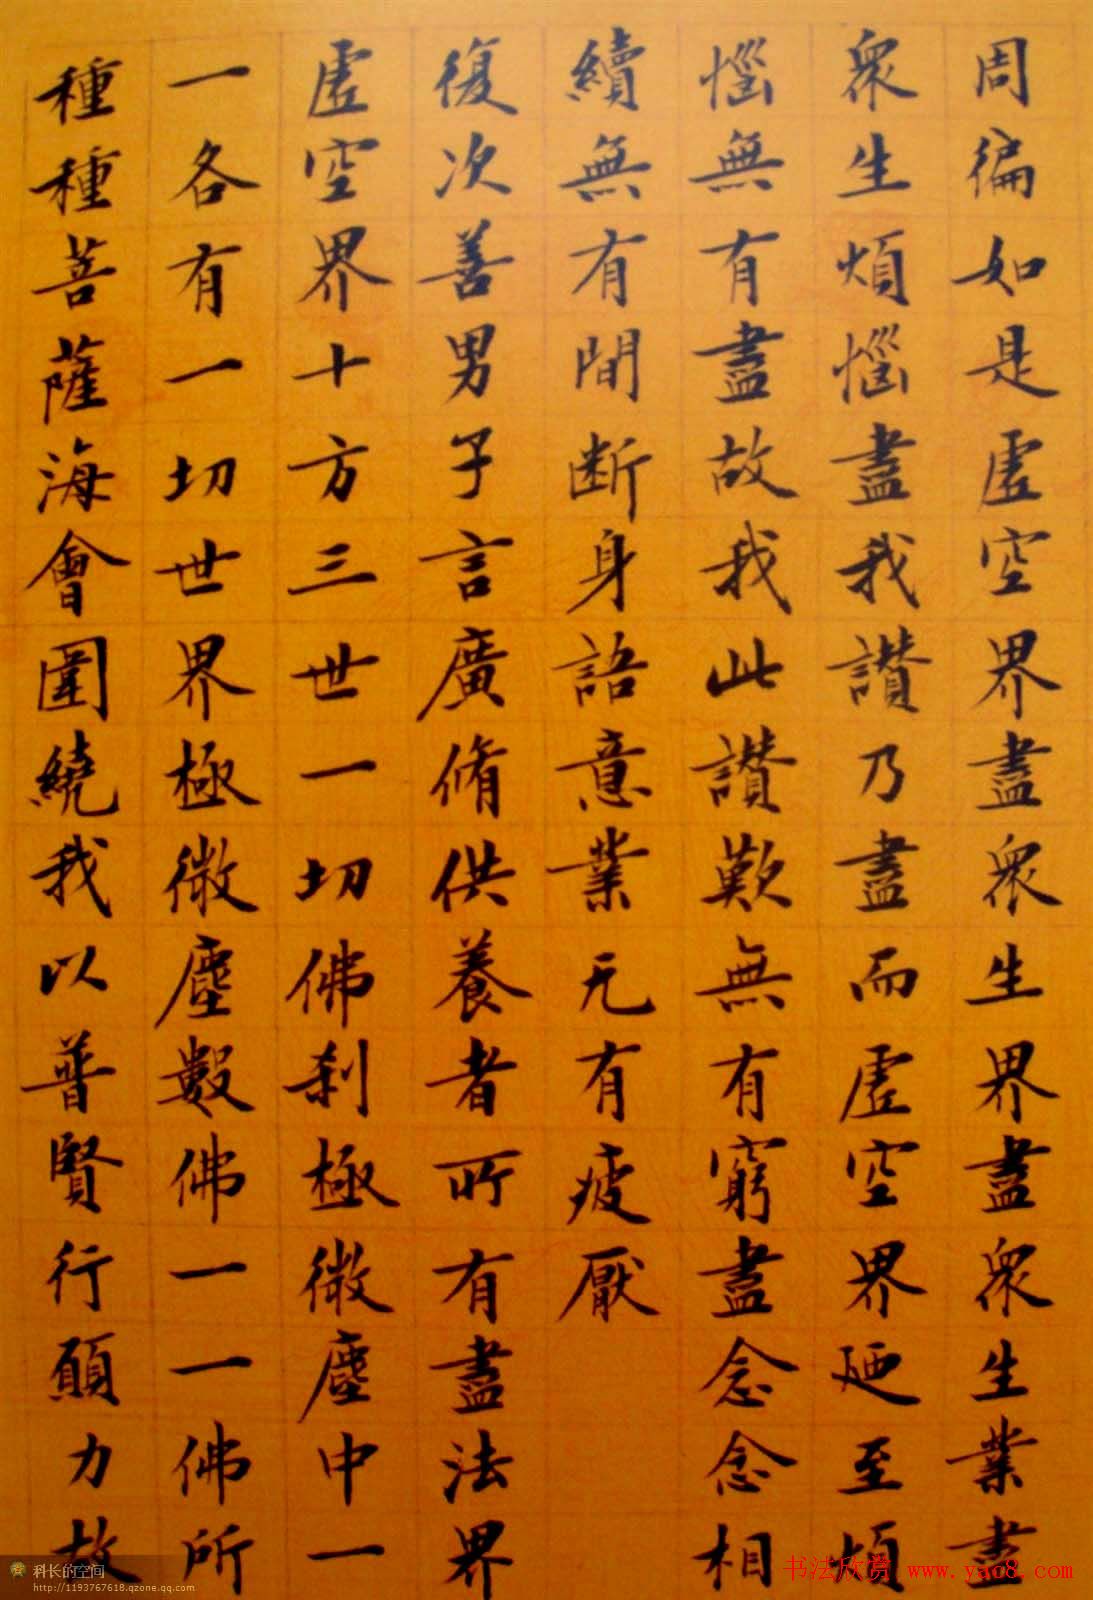 周徧如是虛空界盡衆生界盡衆生業盡
衆生煩惱盡我讃乃盡而虛空界廼至煩
惱無有盡故我此讃歎無有窮盡念念相
續無有間断身語意業无有疲厭
復次善男子言廣脩供養者所有盡法界
虛空界十方三世一切佛刹極微塵中一
一各有一切世界極微塵數佛一一佛所
種種菩薩海會圍繞我以普賢行願力故
科长的空间
http://1193767618.qzone.qq.com
书法欣赏 www.yac8.com